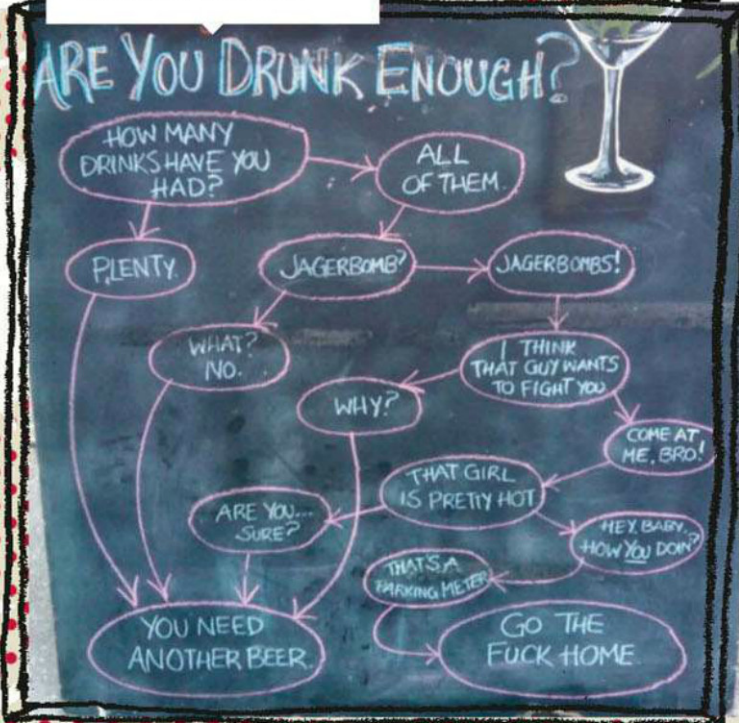 ARE YOU DRUNK ENOUGH?
HOW MANY
DRINKS HAVE YOU
HAD?
ALL
OF THEM.
PLENTY.
JAGERBOMB?
JAGERBOMBS!
WHAT?
NO.
I THINK
THAT GUY WANTS
TO FIGHT YOU
WHY?
COME AT
ME, BRO!
THAT GIRL
IS PRETTY HOT
ARE YOU...
SURE?
HEY, BABY,
HOW YOU DOIN?
THAT'S A
PARKING METER
YOU NEED
ANOTHER BEER.
GO THE
FUCK HOME